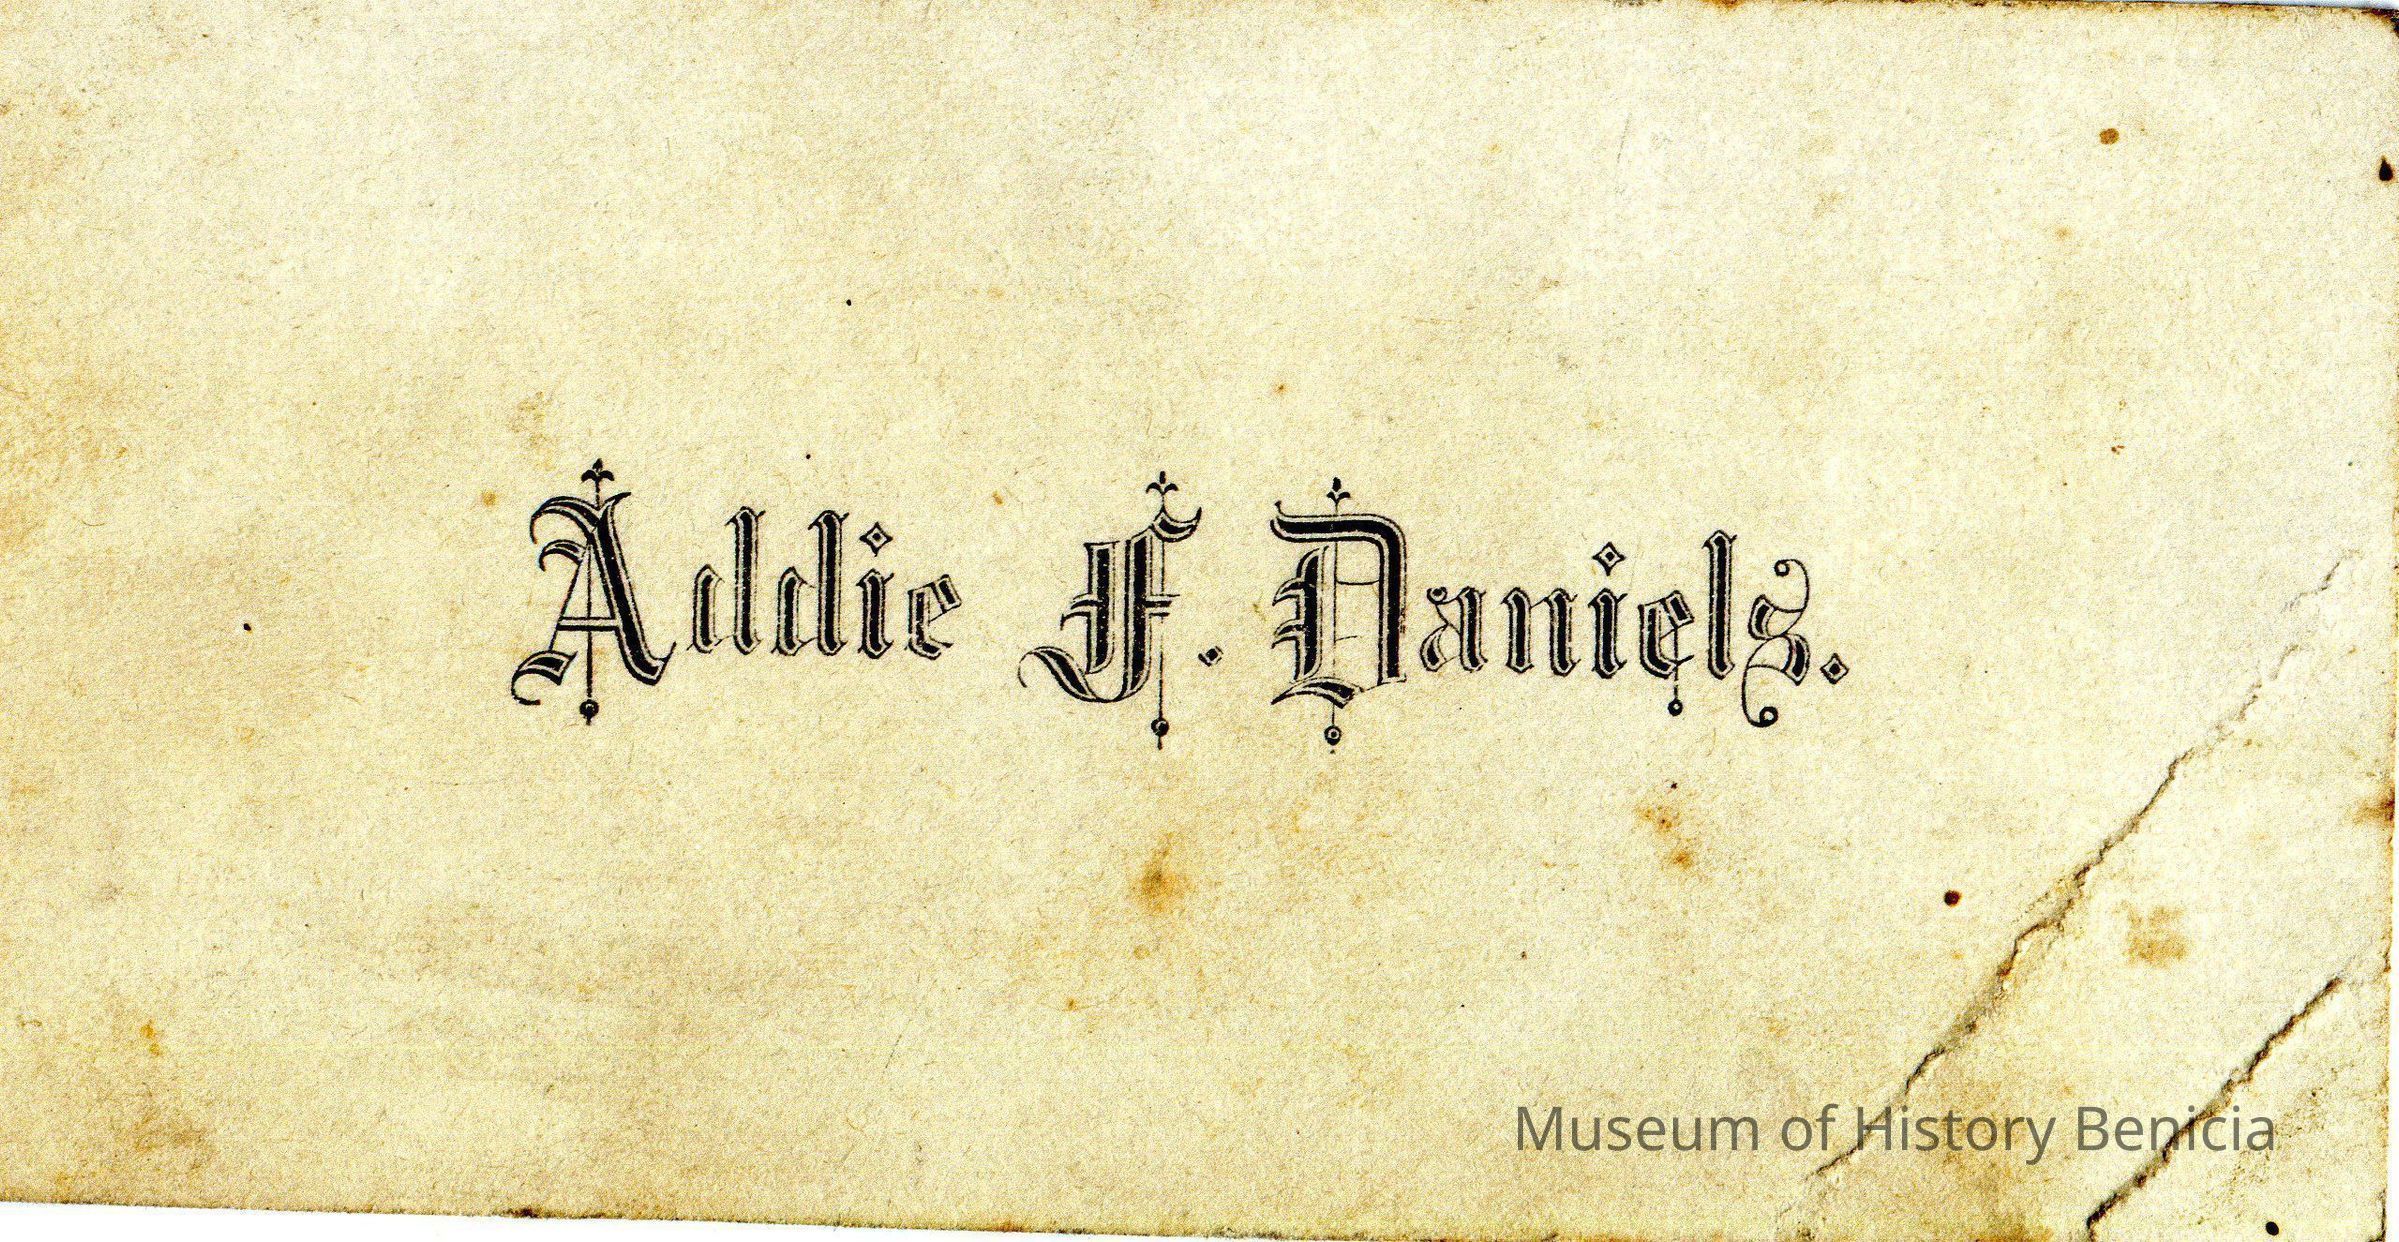 Addie F. Daniels.
Museum of History Benicia